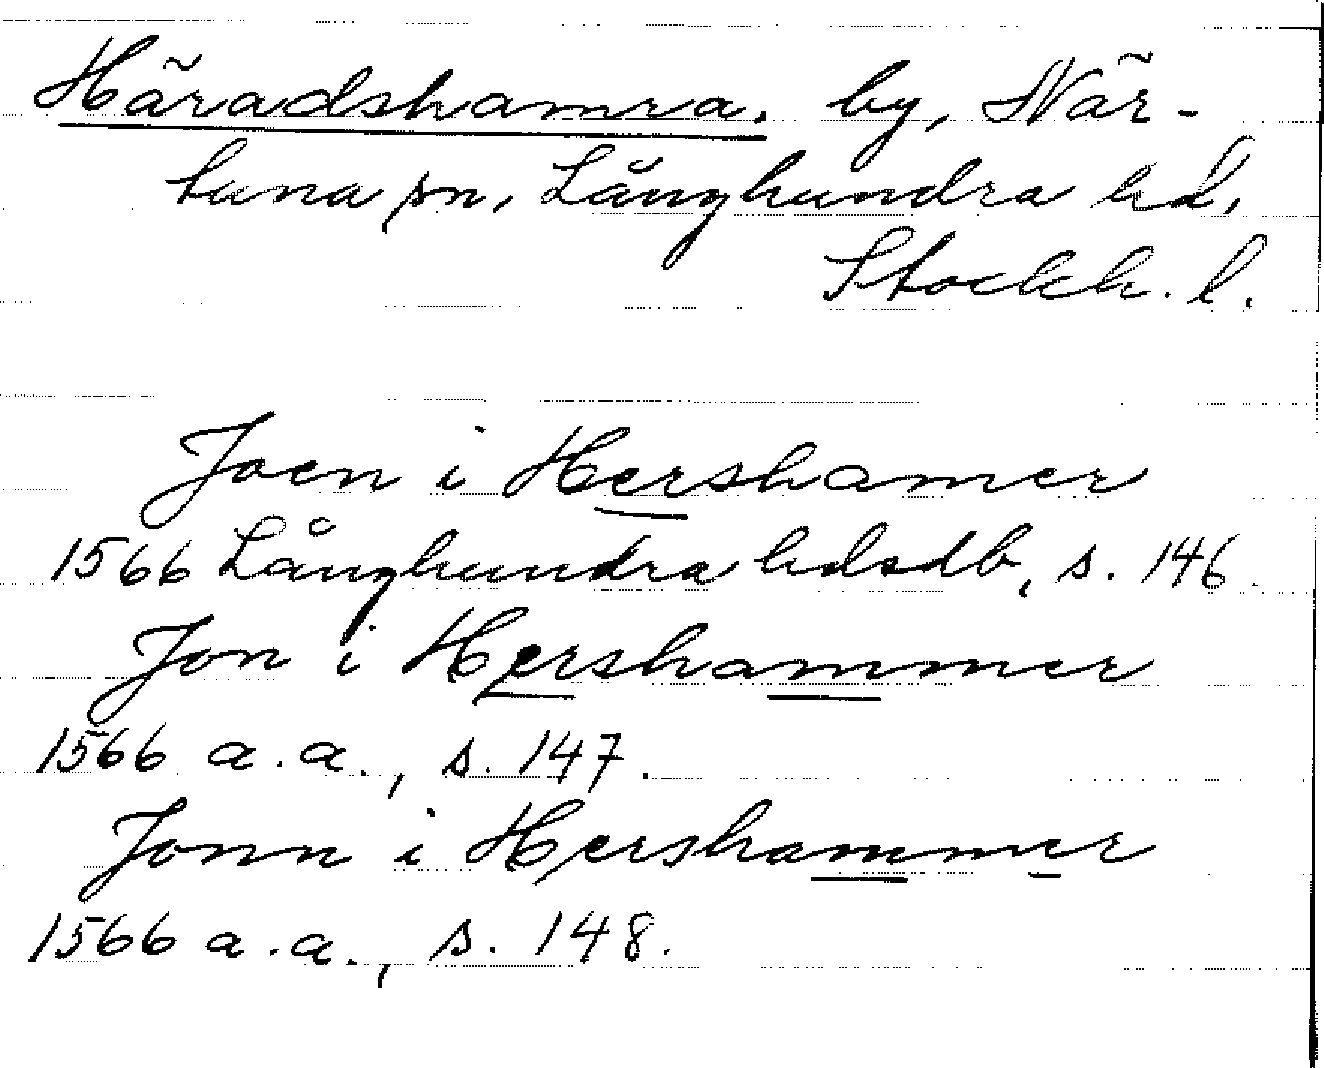 Häradshamra. by, När-
tuna sn, Långhundra hd,
Stockh. l.
Joen i Hershamer
1566 Långhundra hdsdb, s. 146.
Jon i Hershammer
1566 a.a., s. 147.
Jonn i Hershammer
1566 a.a., s. 148.